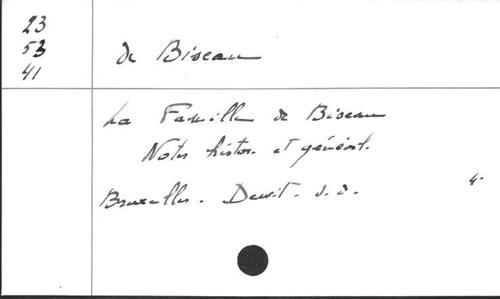 23
53
41
de Biseau
La Famille de Biseau
Notes histor. et généal.
Bruxelles. Dewit. s.d.
4°